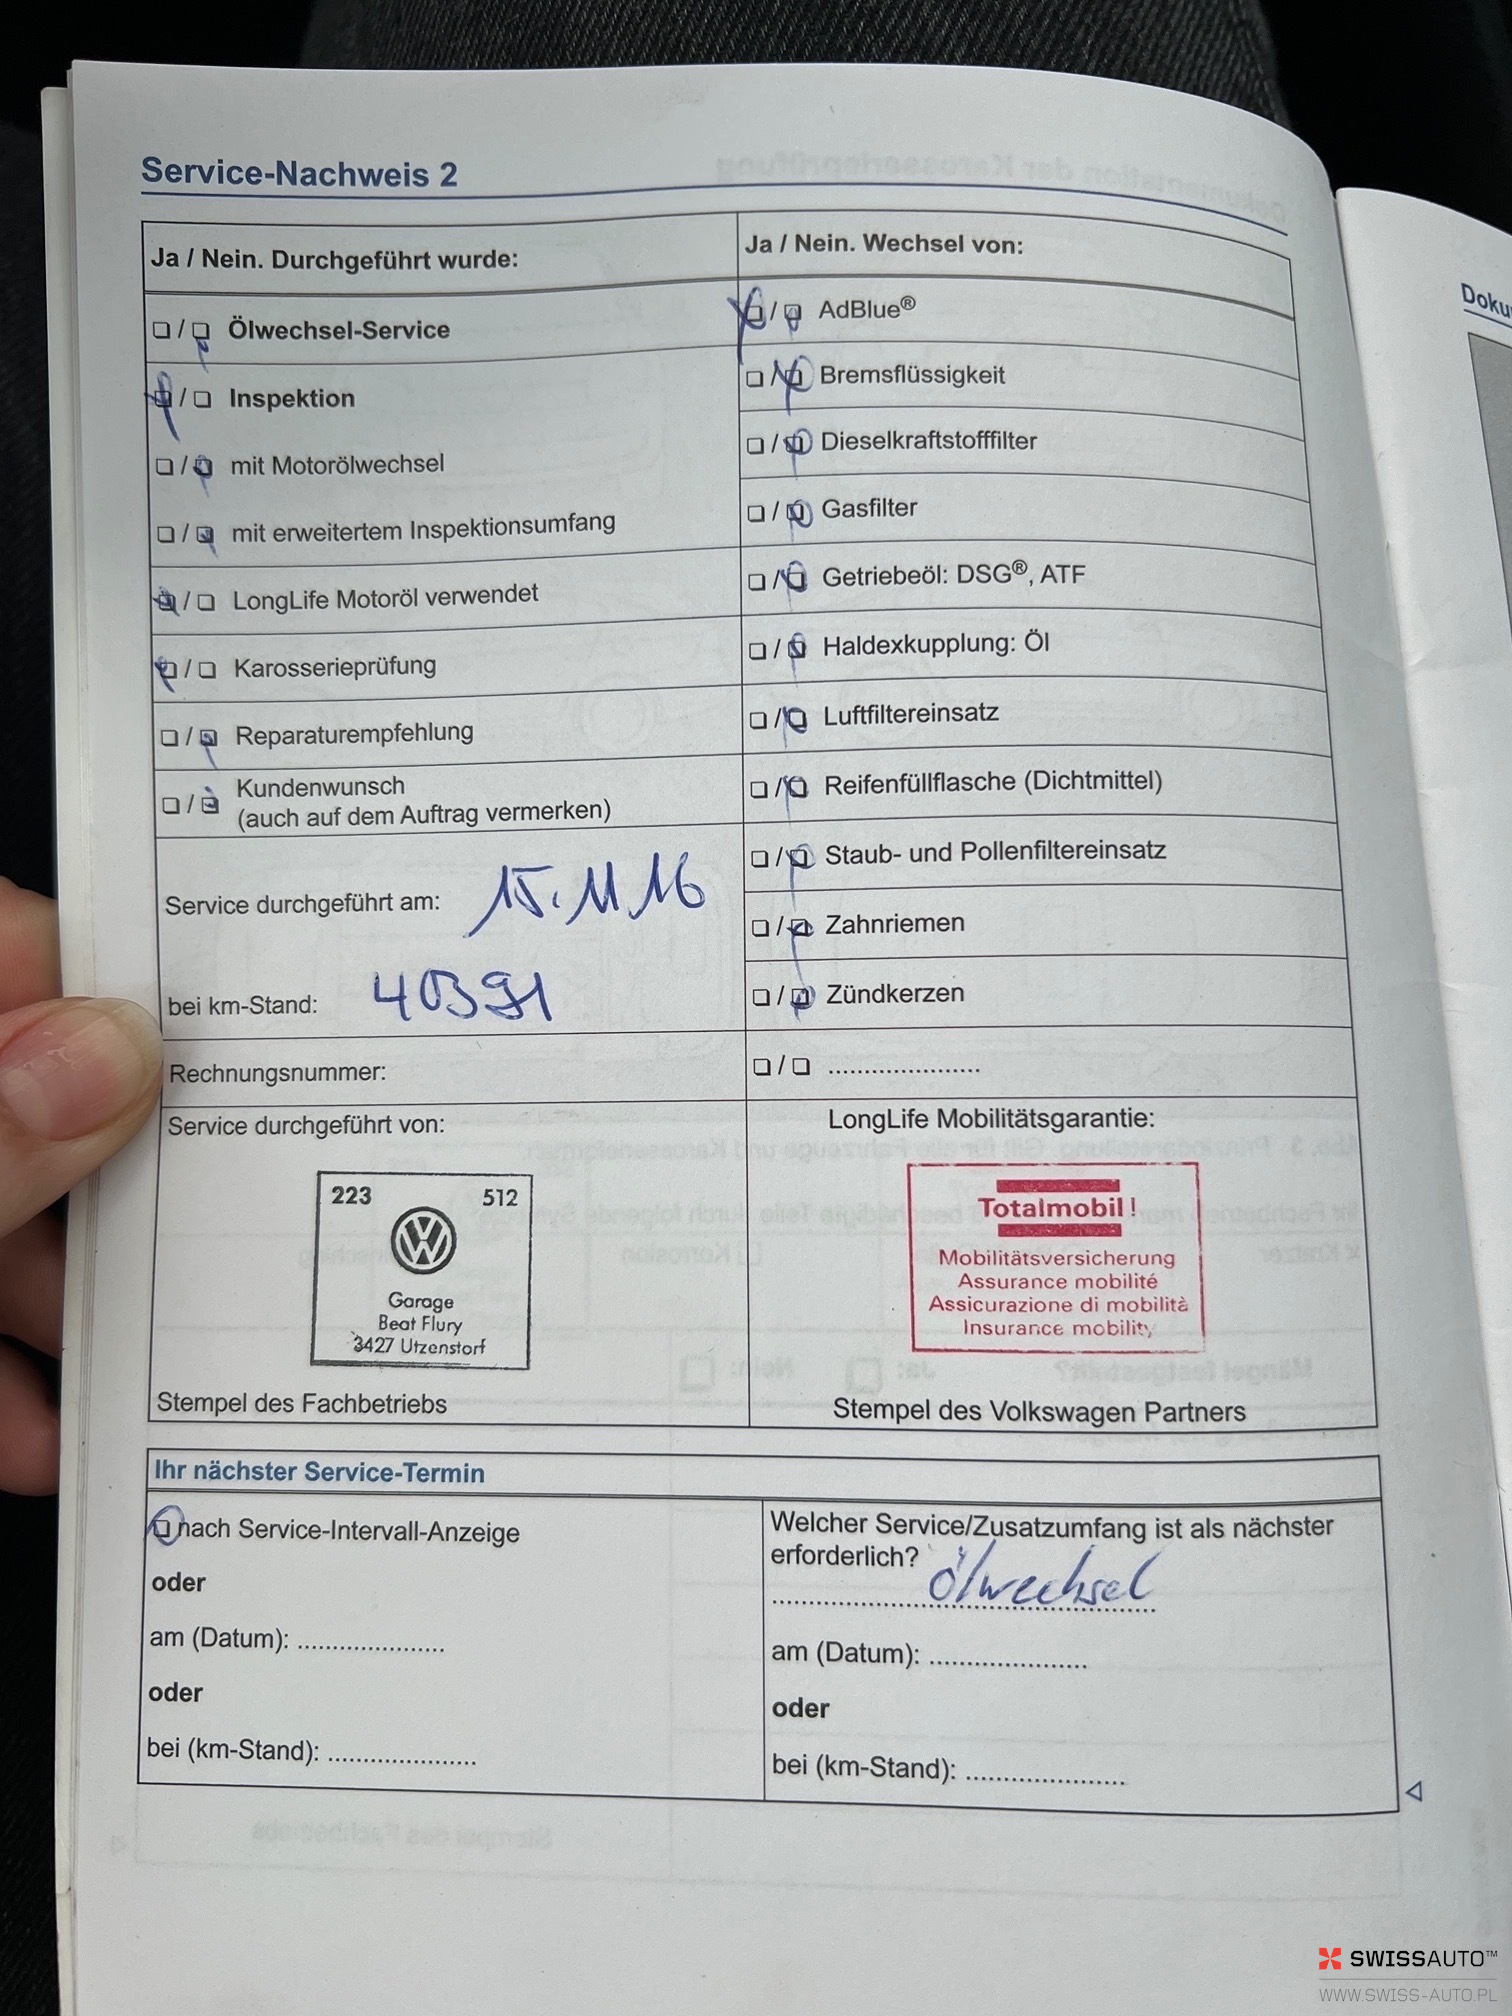 Service-Nachweis 2
Ja / Nein. Durchgeführt wurde:
❏ / ❏ Ölwechsel-Service
❏ / ❏ Inspektion
❏ / ❏ mit Motorölwechsel
❏ / ❏ mit erweitertem Inspektionsumfang
❏ / ❏ LongLife Motoröl verwendet
❏ / ❏ Karosserieprüfung
❏ / ❏ Reparaturempfehlung
❏ / ❏ Kundenwunsch
(auch auf dem Auftrag vermerken)
Service durchgeführt am: 15.11.16
bei km-Stand: 40391
Rechnungsnummer:
Ja / Nein. Wechsel von:
❏ / ❏ AdBlue®
❏ / ❏ Bremsflüssigkeit
❏ / ❏ Dieselkraftstofffilter
❏ / ❏ Gasfilter
❏ / ❏ Getriebeöl: DSG®, ATF
❏ / ❏ Haldexkupplung: Öl
❏ / ❏ Luftfiltereinsatz
❏ / ❏ Reifenfüllflasche (Dichtmittel)
❏ / ❏ Staub- und Pollenfiltereinsatz
❏ / ❏ Zahnriemen
❏ / ❏ Zündkerzen
❏ / ❏ ......................
Service durchgeführt von:
223 512
Garage
Beat Flury
3427 Utzenstorf
Stempel des Fachbetriebs
LongLife Mobilitätsgarantie:
Totalmobil!
Mobilitätsversicherung
Assurance mobilité
Assicurazione di mobilità
Insurance mobility
Stempel des Volkswagen Partners
Ihr nächster Service-Termin
❏ nach Service-Intervall-Anzeige
oder
am (Datum): ......................
oder
bei (km-Stand): ......................
Welcher Service/Zusatzumfang ist als nächster
erforderlich?
Ölwechsel
am (Datum): ......................
oder
bei (km-Stand): ......................
Doku
SWISSAUTO™
WWW.SWISS-AUTO.PL